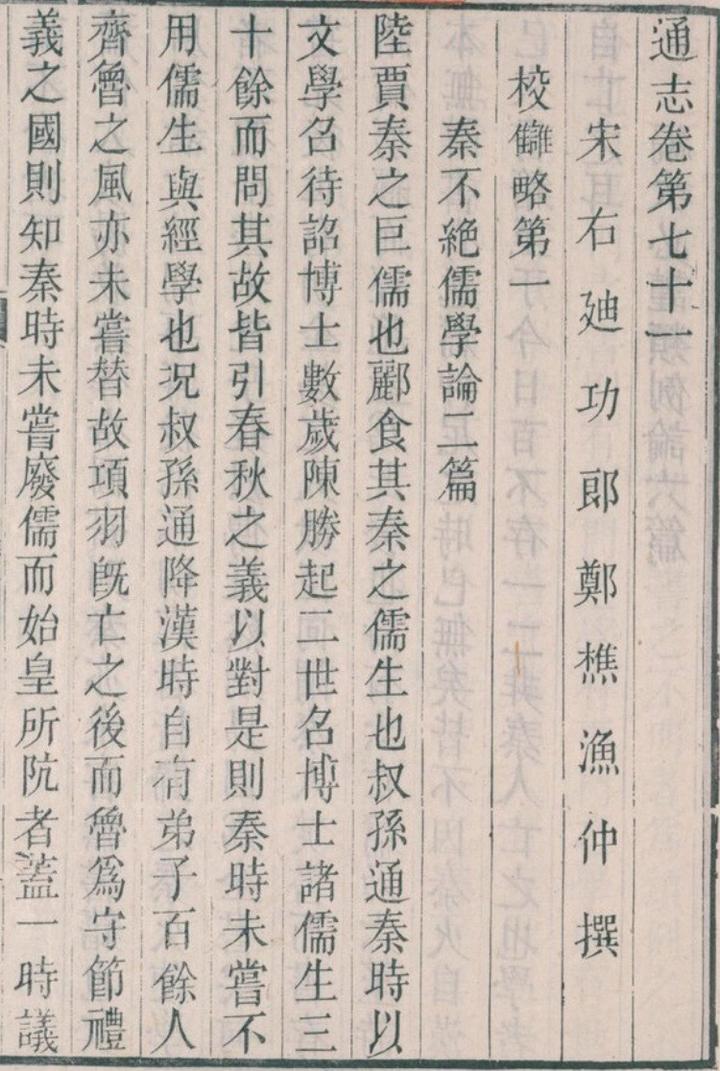 通志卷第七十一
宋右廸功郎鄭樵漁仲撰
校讎略第一
秦不絕儒學論二篇
陸賈秦之巨儒也酈食其秦之儒生也叔孫通秦時以
文學召待詔博士數歲陳勝起二世召博士諸儒生三
十餘而問其故皆引春秋之義以對是則秦時未嘗不
用儒生與經學也况叔孫通降漢時自有弟子百餘人
齊魯之風亦未嘗替故項羽旣亡之後而魯爲守節禮
義之國則知秦時未嘗廢儒而始皇所阬者蓋一時議